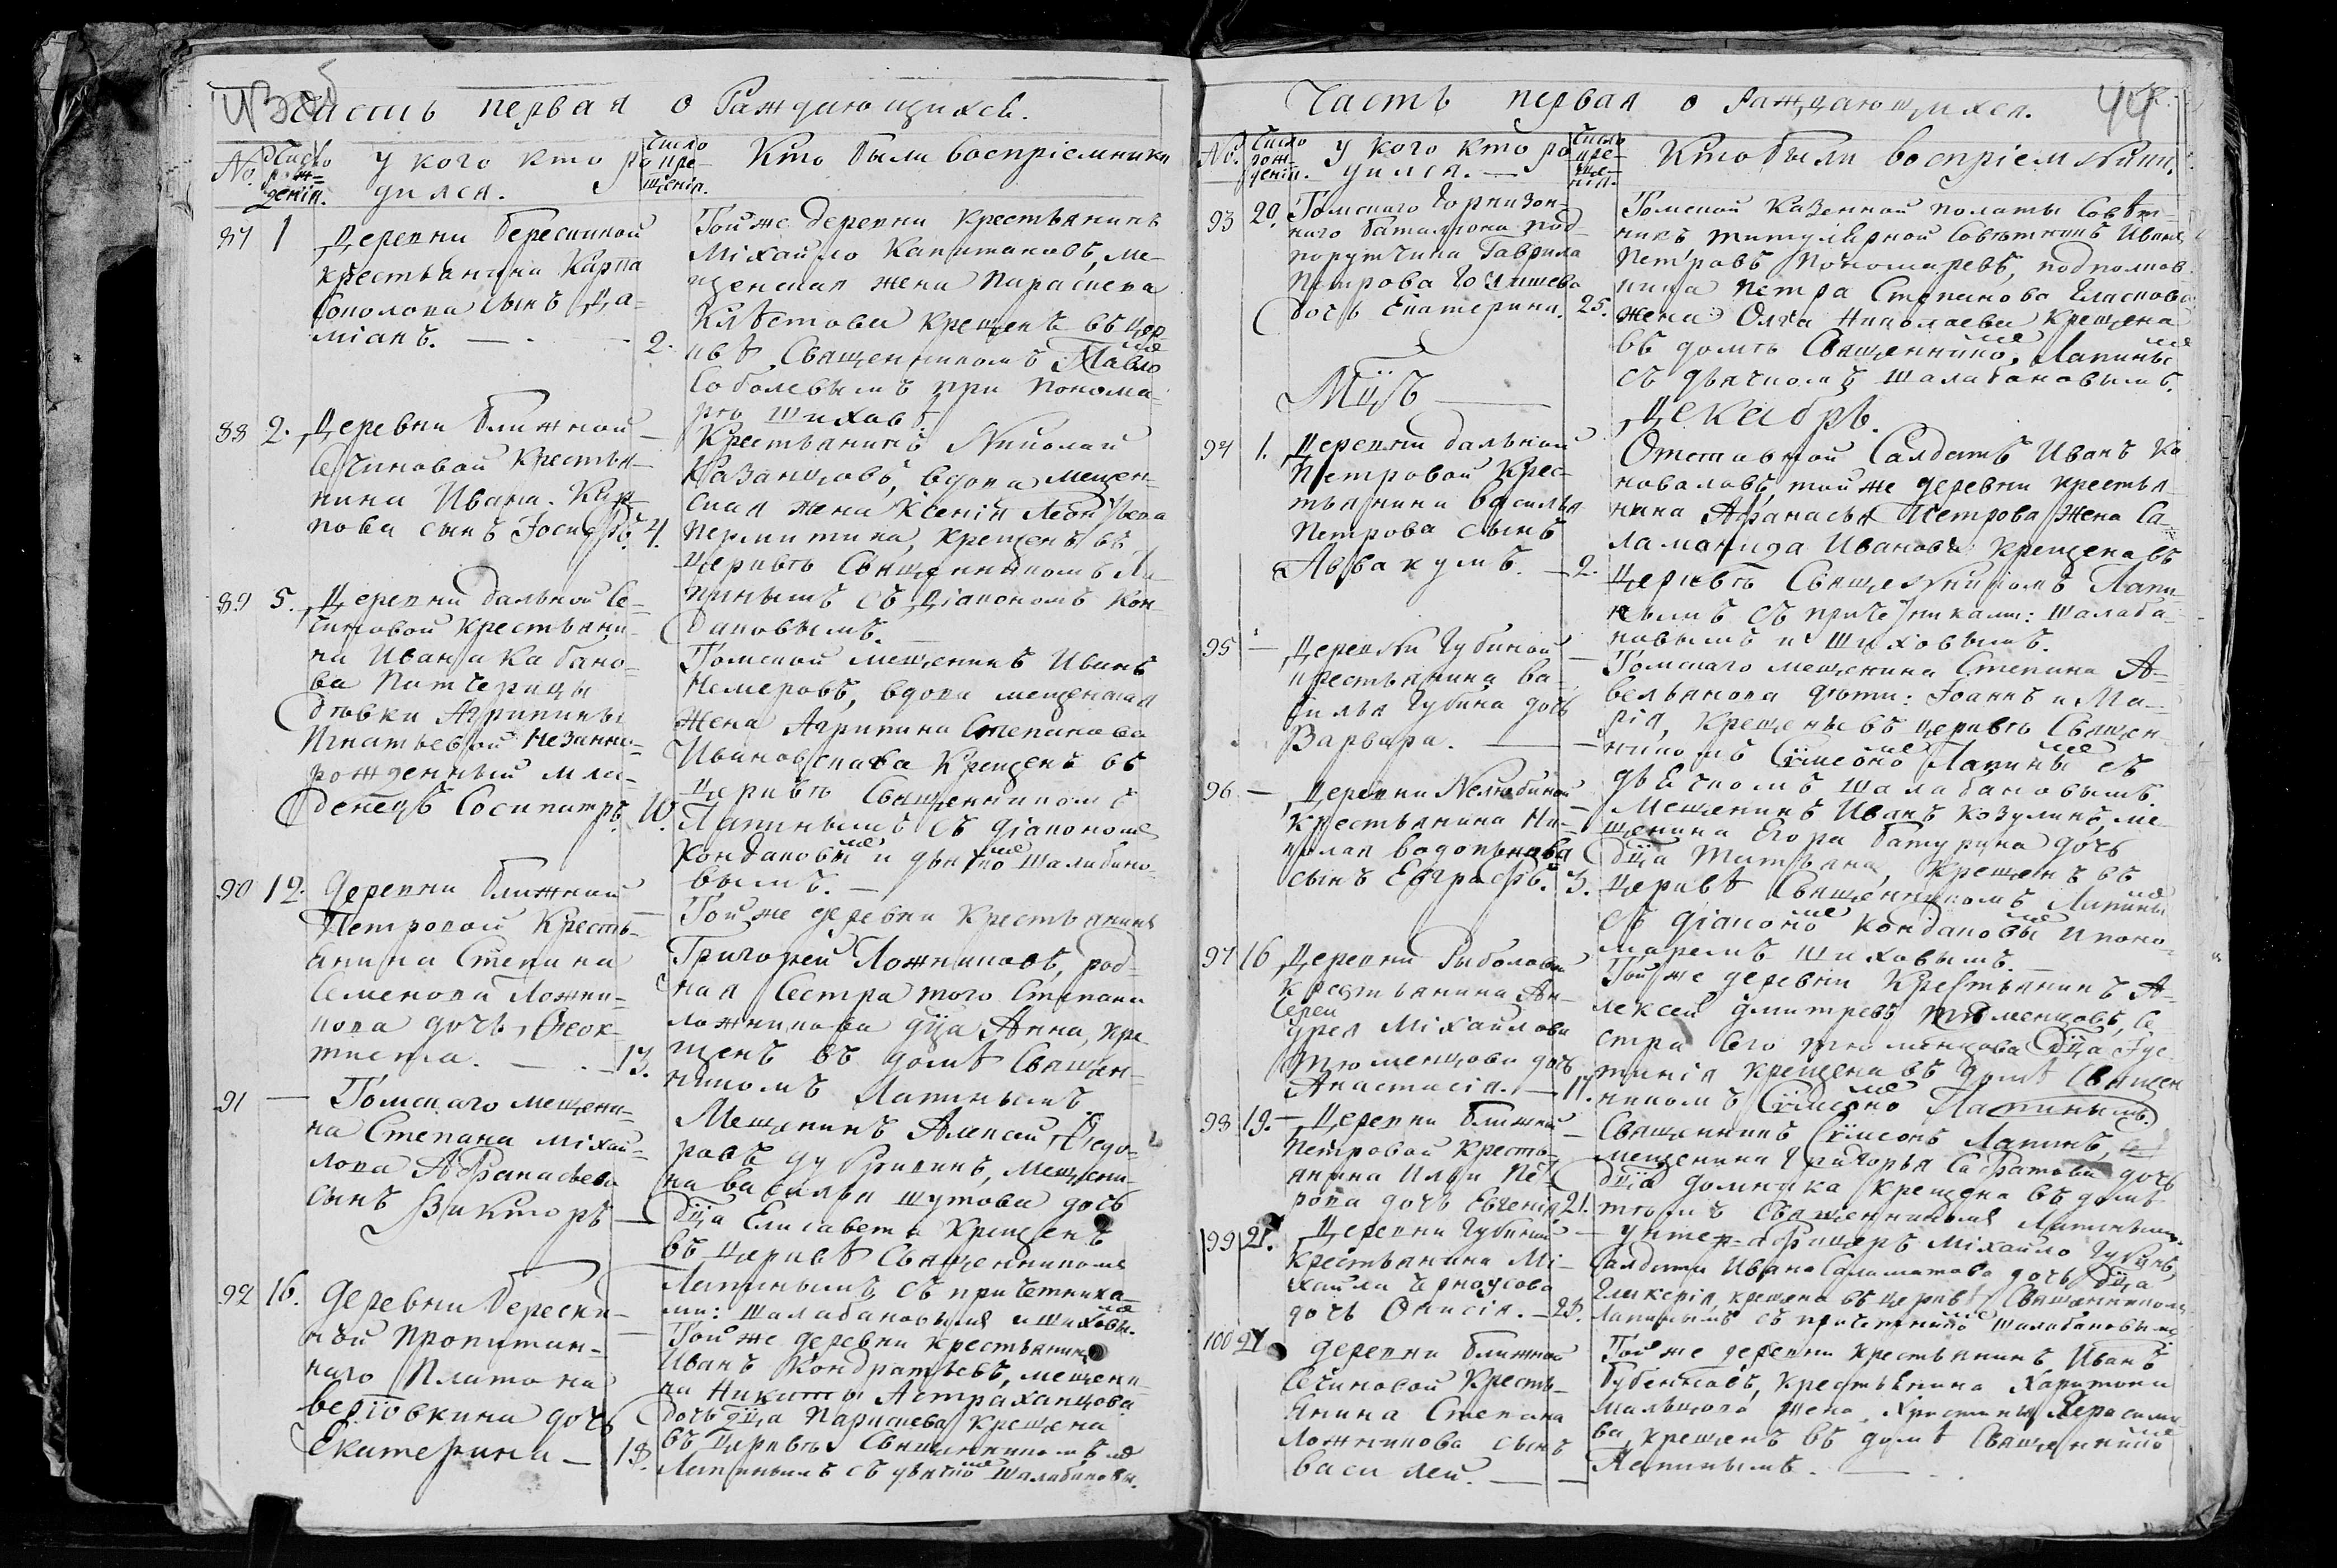 Часть первая о Раждающихся.
No.
Число рож=дения.
У кого кто родился.
Число крещения.
Кто были восприемники
87 1 Деревни Берескиной
крестьянина Карпа
Соколова сынъ Да-
міанъ. 2.
Той же деревни крестьянинъ
Міхайло Капитановъ, ме-
щенская жена Параскева
крещенъ въ цер
квѣ Священникомъ Павло
Соболевымъ при понома-
рѣ Шиховѣ.
88 2. Деревни Ближной
Сечиновой крестья-
нина Ивана Кар
пова сынъ Іосифъ. 4.
Крестьянинъ Николай
Казанцовъ, вдова мещен-
ская жена Ксенія Леонтьева
крещенъ въ
церквѣ Священникомъ Ла-
пинымъ съ Діакономъ Кон-
даковымъ.
89 5. Деревни Дальной Се-
чиновой крестьяни-
на Ивана Кабано-
ва
дѣвки Агрипины
Игнатьевой незакно-
рожденный мла-
денецъ Сосипатръ. 10.
Томской мещенинъ Иванъ
Немеровъ, вдова мещенская
жена Агрипина Степанова
Ивановскава крещенъ въ
церквѣ Священникомъ
Лапинымъ съ діакономъ
Кондаковым и дьячком Шалабано-
вымъ.
90 12. Деревни Ближной
Петровой Кресть-
янина Степана
Семенова Ложни-
кова дочь, Ѳеок-
тиста. 13.
Той же деревни Крестьянинъ
Григорей Ложниковъ, род-
ная сестра того Степана
Ложникова дца Анна, кре
щенъ въ домѣ Священ-
никомъ Лапинымъ
91 Томскаго мещени-
на Степана Міхай-
лова Афанасьева
сынъ Викторъ
Мещенинъ Алексей Ѳедо-
ровъ Дубровинъ, мещени-
на Василья Шутова дочь
дца Елисавета крещенъ
въ церквѣ Священникомъ
Лапинымъ, съ причетника-
ми: Шалабановымъ и Шиховым.
92 16. Деревни Берески-
ной пропитан-
наго Платона
Верёвкина дочь
Екатерина 18.
Той же деревни крестьянинъ
Иванъ Кондратьевъ, мещени-
на Никиты Астраханцова
дочь дца Параскева крещена
въ церквѣ Священникомъ
Лапинымъ съ дьячком Шалабановым.
Часть первая о раждающихся.
44
No.
Число рож-дения.
У кого кто родился.
Число крещения.
Кто были восприемники.
93 20. Томскаго Горнизон-
наго баталиона под-
порутчика Гаврила
Петрова
дочь Екатерина. 25.
Томской казенной полаты Совѣт-
никъ титулярной Совѣтникъ Иванъ
Петровъ Пономаревъ, подполков
ника Петра Степанова
жена Олга Николаева крещена
въ домѣ Священником Лапиным
съ дьячкомъ Шалабановымъ.
Мцъ Декабрь.
94 1. Деревни Дальной
Петровой Крес-
тьянина Василья
Петрова сынъ
Аввакумъ. 2.
Отставной Салдатъ Иванъ Ко
новаловъ, той же деревни крестья-
нина Афанасья Петрова жена Са-
ламанида Иванова крещенъ въ
церквѣ Священникомъ Лапи-
нымъ съ причетниками: Шалаба-
новымъ и Шиховымъ.
95 Деревни Губиной
крестьянина Ва-
силья Губина дочь
Варвара.
Томскаго мещенина Степана А-
вельянова дѣти: Іоаннъ и Ма-
рія, крещены въ церквѣ Священ-
никомъ Сѵмеоно Лапины съ
дьячкомъ Шалабановымъ.
96 Деревни Нелюбиной
Крестьянина Ни-
колая Водопьянова
сынъ Евграфъ. 3.
Мещенинъ Иванъ Козулинъ, ме-
щенина Егора Батурина дочь
дца Татьяна, крещенъ въ
церквѣ Священникомъ Лапины
съ діаконо Кондаковы и поно-
маремъ Шиховымъ.
97 16 Деревни Рыболовой
Крестьянина Ан-
дрея Міхайлова
Тюменцова дочь
Анастасія. 17.
Той же деревни Крестьянинъ А-
лексей Дмитревъ Тюменцовъ, се
стра его Тюменцова дца Іус-
тинія крещена въ домѣ Священ
никомъ Сѵмеоно Лапинымъ.
98 19. Деревни Ближной
Петровой Кресть-
янина Ильи Пе-
рова дочь Евгенія 21.
Священникъ Сѵмеонъ Лапинъ,
мещенина Григорья Сафатова дочь
дца Домника крещена въ домѣ
тѣмъ Священникомъ Лапинымъ.
99 21. Деревни Губиной
Крестьянина Мі-
хаила Черноусова
дочь Онисія. 23.
Унтер-афицеръ Міхайло Губинъ,
Салдата Ивана Саламатова дочь дца
Гликерія, крещена въ церквѣ Священникомъ
Лапинымъ съ причетнико Шалабановымъ
100 27 Деревни Ближной
Сечиновой Кресть-
янина Степана
Ложникова сынъ
Василей.
Той же деревни крестьянинъ Иванъ
Бубенновъ, крестьянина Харитона
Мальцова жена, Христина Герасимо-
ва, крещенъ въ домѣ Священнико
Лапинымъ.